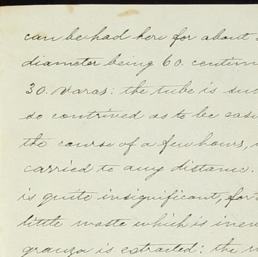 can be had here for about
diameter being 60. centim
30. varas: the tube is
so contrived as to be easi
the course of a few hours,
carried to any distance.
is quite insignificant, for
little waste which is
granza is extracted: the